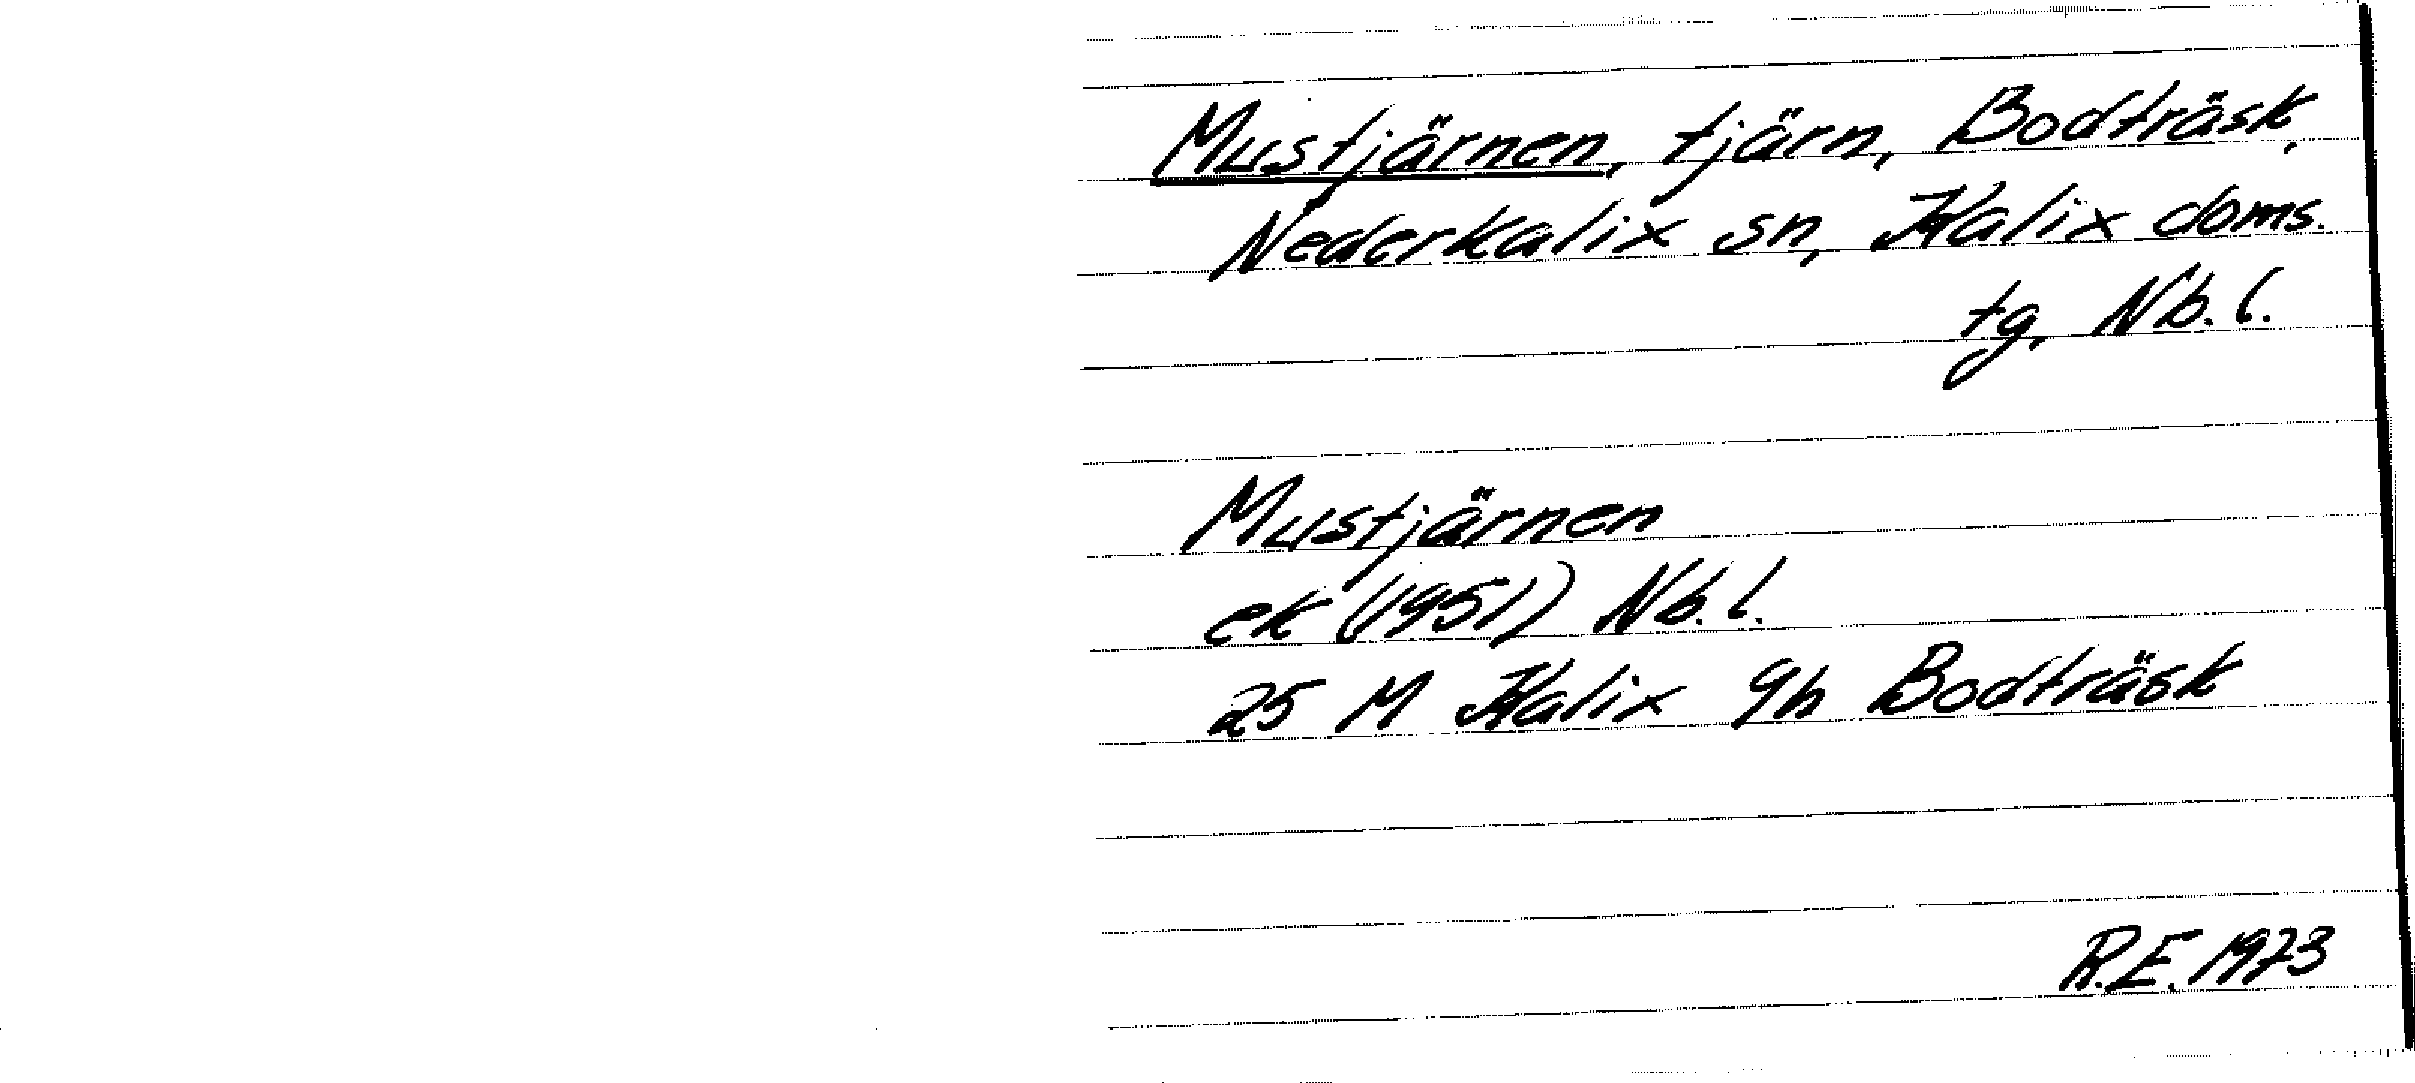 Mustjärnen, tjärn, Bodträsk,
Nederkalix sn, Kalix doms.
tg, Nb. l.
Mustjärnen
ek (1951) Nb. l.
25 M Kalix 9h Bodträsk
R.E. 1973